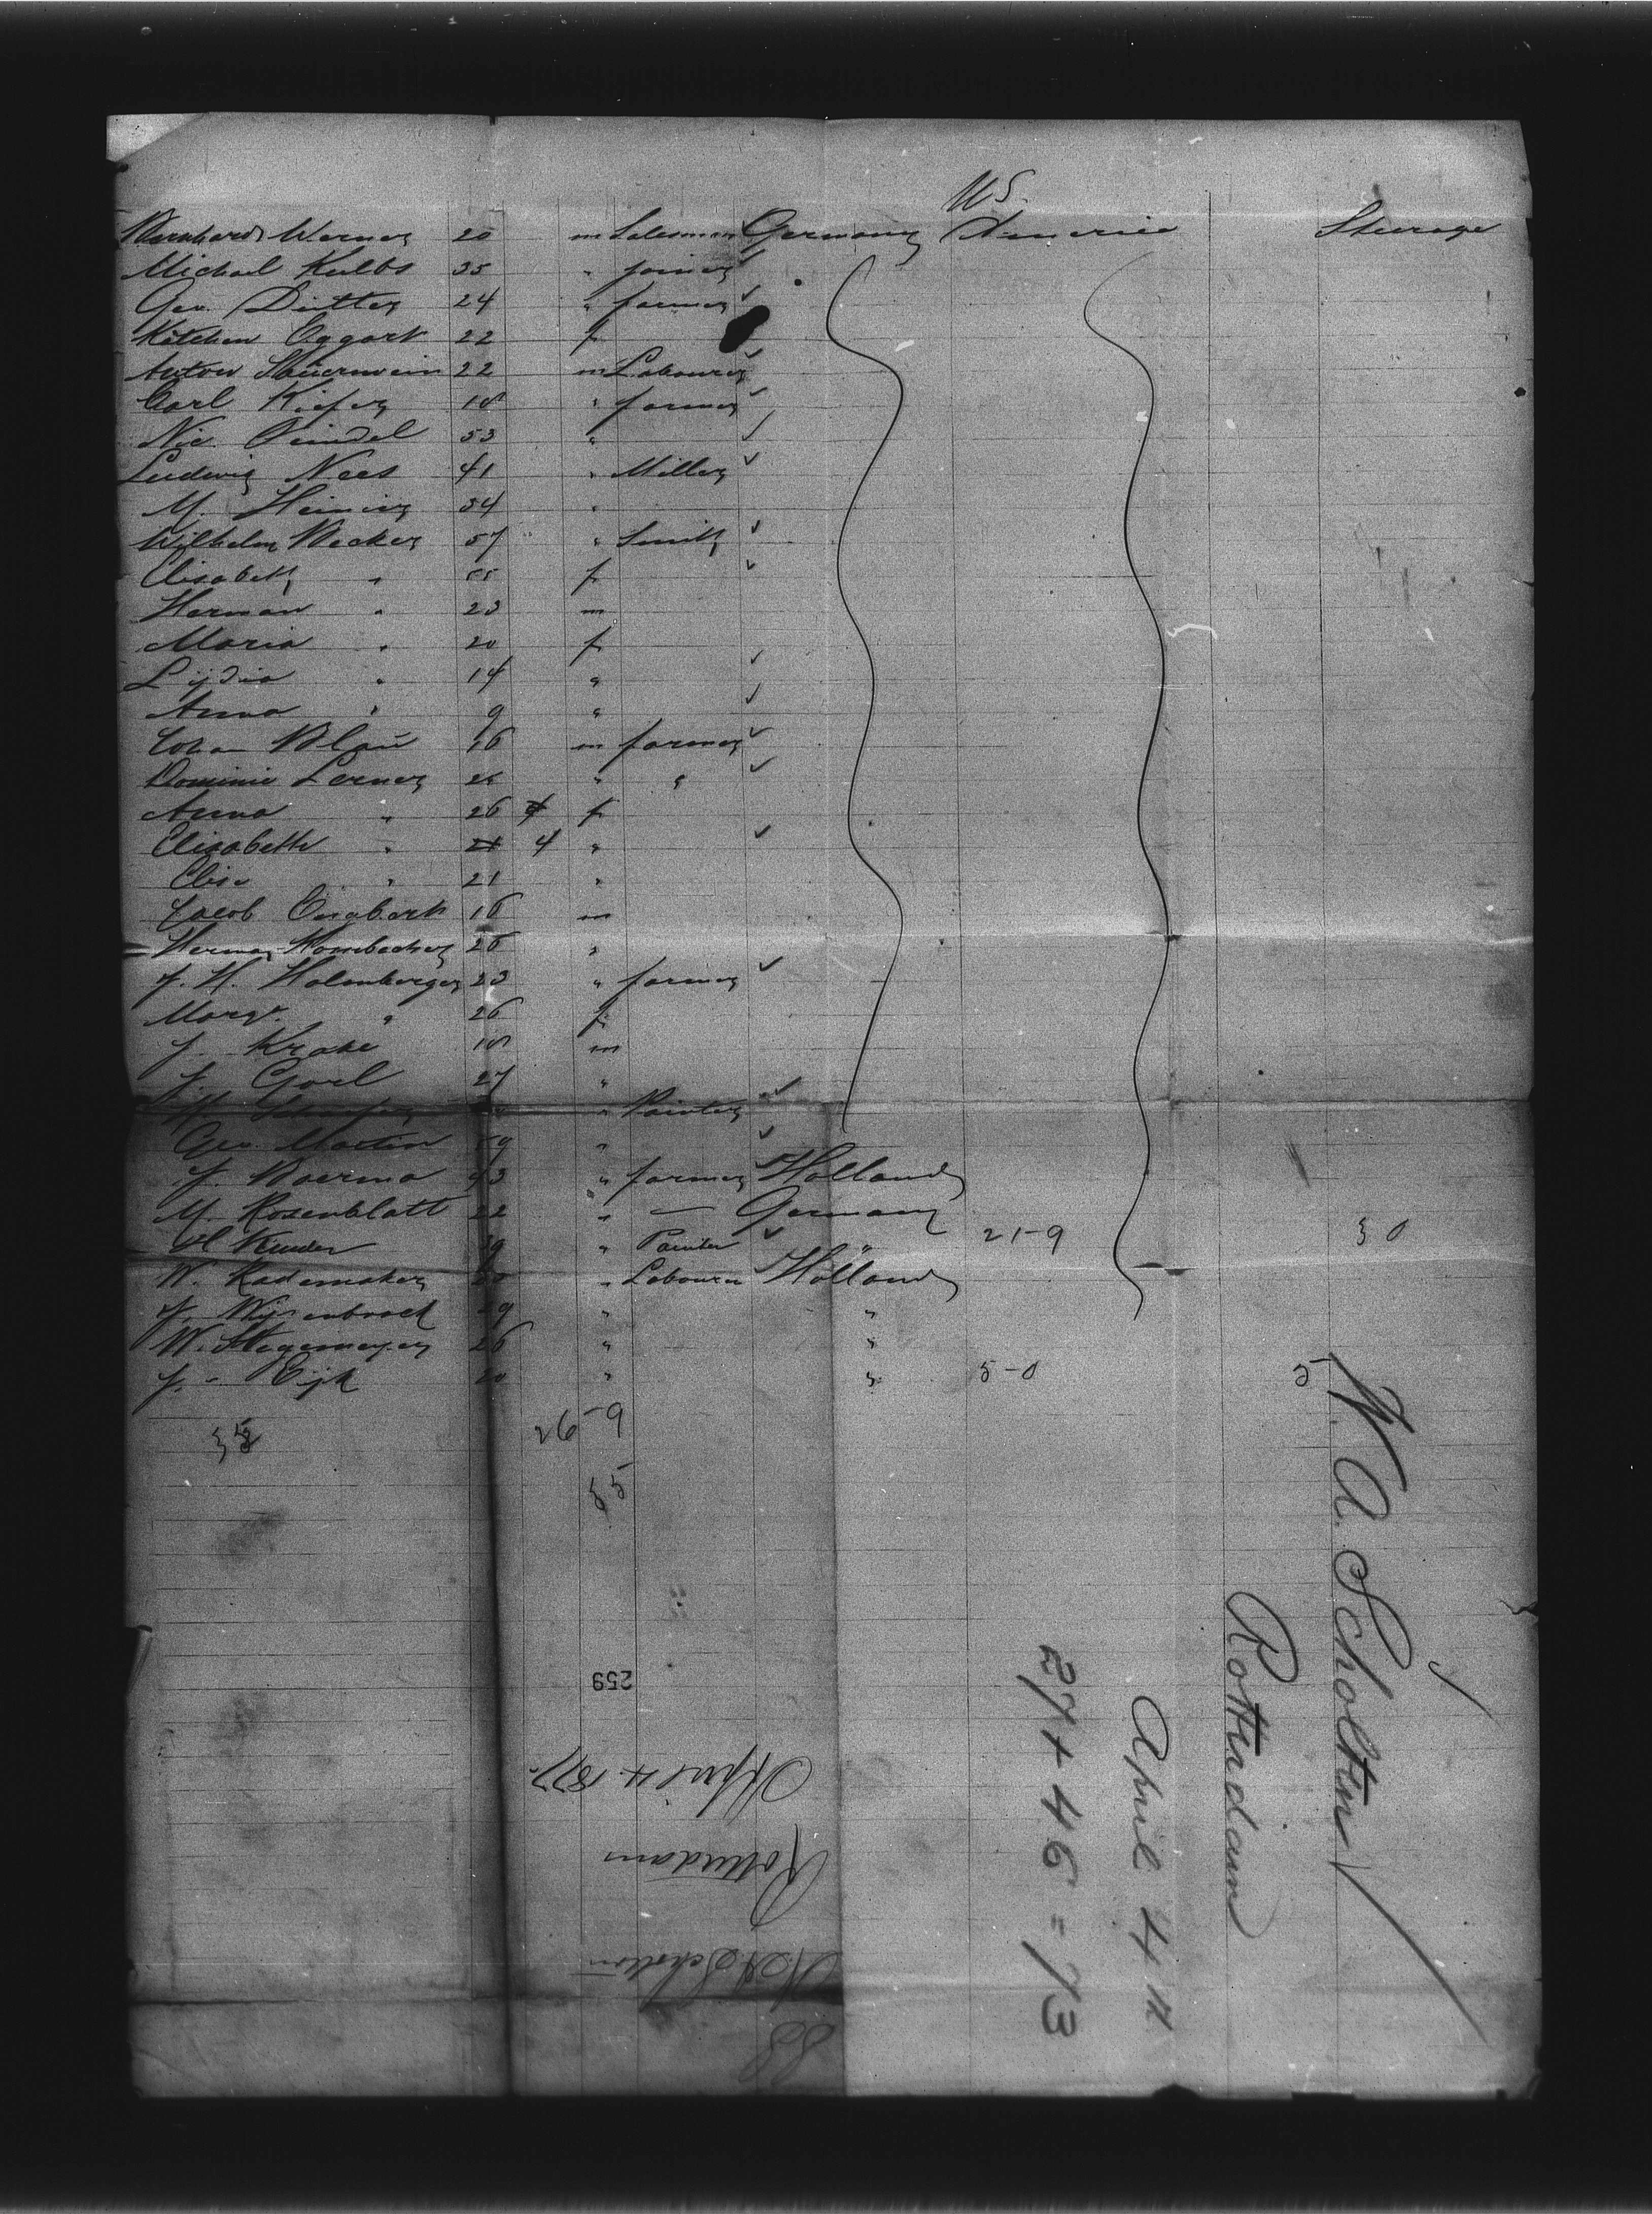 U.S.
Bernhard Werner 20 m Salesman Germany America Steerage
Michael Kulbs 35 " joiner
Geo. Dietter 24 " farmer
Kätchen Eggart 22 f
Anton Sauerwein 22 m Labourer
Carl Kiefer 18 " farmer
Nic. 53 "
Ludwig Nees 41 " Miller
M. Heining 34 "
Wilhelm Becker 57 " Smith
Elisabeth " 55 f
Herman " 23 m
Maria " 20 f
Lydia " 14 "
Anna " 9 "
Johan Blau 16 m farmer
Dominic Lerner 26 " "
Anna " 26 f
Elisabetha " 4 "
Elise " 21 "
Jacob 16 m
Herman Hornbacher 26 "
J. H. Holenberger 23 " farmer
Margr. " 26 f
J. Krake 18 m
J. Gorl 27 "
" Painter
Geo. Martin "
J. Boerma 43 " farmer Holland
M. Rosenblatt 22 " — Germany
H Kunder " Painter " 21-9 30
W. Rademaker " Labourer Holland
J. Wijsenbroek " "
W. Stegemeyer 26 " "
J. Eijk 20 " " 5-0 5
35
26-9
35
W. A. Scholten
Rotterdam
April 4th
27 + 46 = 73
259
April 4. 1877.
Rotterdam
W. A. Scholten